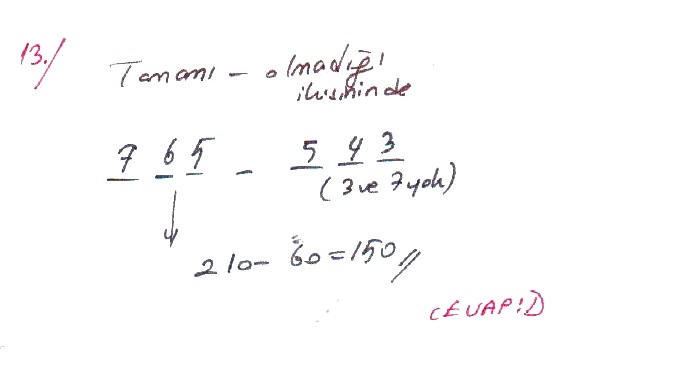 13./
Tamamı - olmadığı
ilişkisinde
7 6 5 - 5 4 3
(3 ve 7 yok)
210 - 60 = 150 //
CEVAP: D